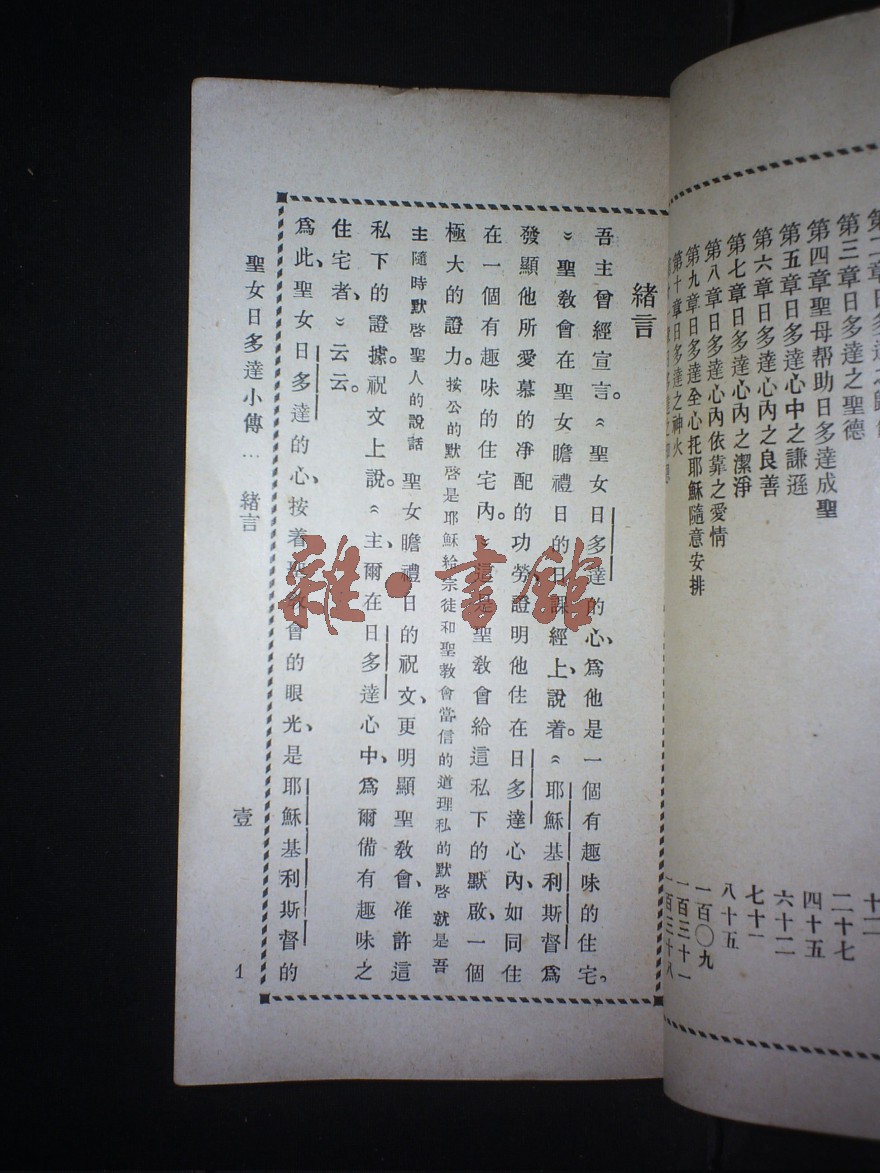 第三章日多達之聖德 二十七
第四章聖母帮助日多達成聖 四十五
第五章日多達心中之謙遜 六十二
第六章日多達心內之良善 七十一
第七章日多達心內之潔淨 八十五
第八章日多達心內依靠之愛情 一百〇九
第九章日多達全心托耶穌隨意安排 一百三十一
第十章日多達之神火 一百三十八
緒言
吾主曾經宣言。《聖女日多達的心、爲他是一個有趣味的住宅。
》聖敎會在聖女瞻禮日的日課經上、說着。《耶穌基利斯督爲
發顯他所愛慕的凈配的功勞、證明他住在日多達心內、如同住
在一個有趣味的住宅內。》這是聖敎會給這私下的默啟、一個
極大的證力。按公的默啓是耶穌給宗徒和聖敎會當信的道理私的默啓就是吾
主隨時默啓聖人的說話 聖女瞻禮日的祝文、更明顯聖敎會、准許這
私下的證據。祝文上說。《主、爾在日多達心中、爲爾備有趣味之
住宅者、》云云。
爲此、聖女日多達的心、按着聖敎會的眼光、是耶穌基利斯督的
聖女日多達小傳… 緒言 壹 1
雜·書館